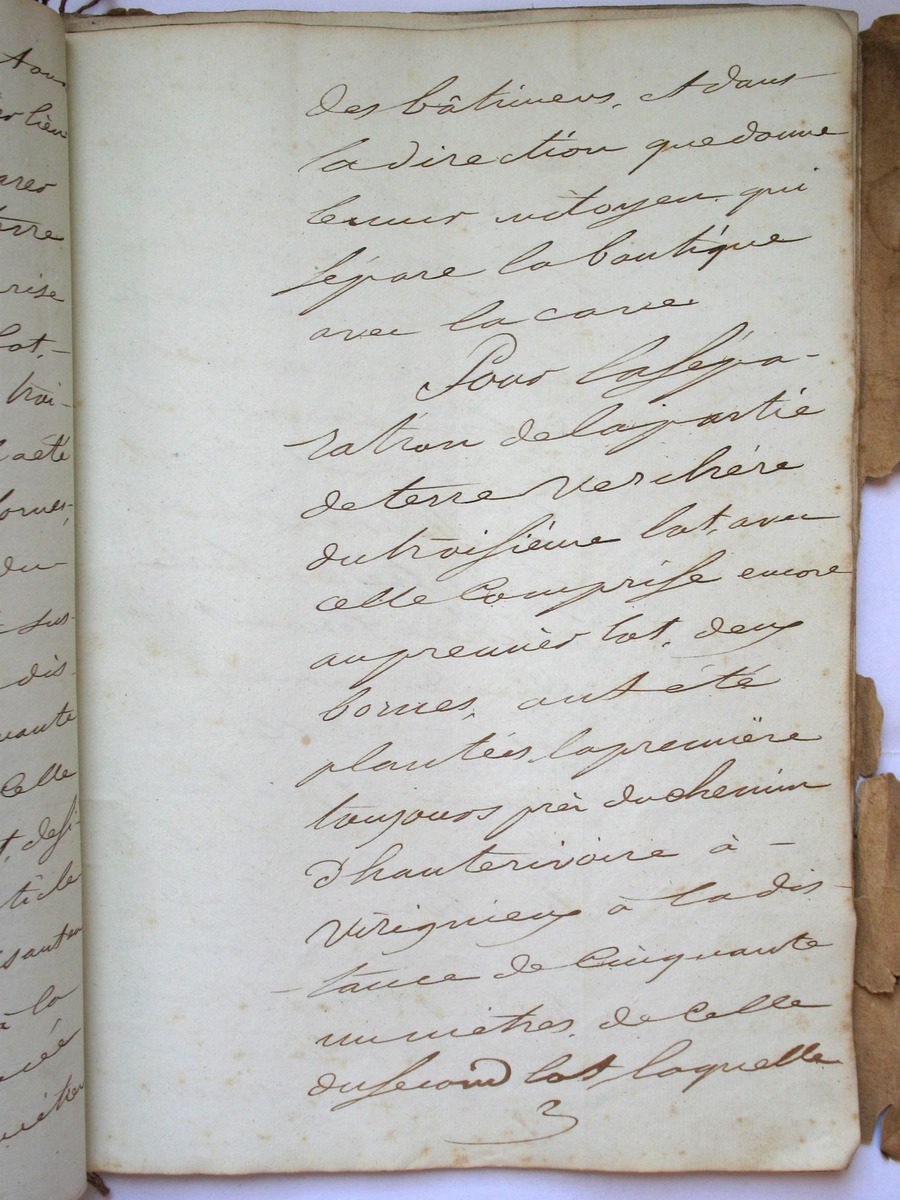 tou
lien
ares
terre
rise
lot,
troi-
a été
bornes,
du
sus-
dis-
uante
Celle
ticle
à la
des bâtimens, et dans
la direction que donne
le mur mitoyen qui
sépare la boutique
avec la cave
Pour la sépa-
ration de la partie
de terre verchère
du troisième lot, avec
celle Comprise encore
au premier lot, deux
bornes, ont été
plantées, la première
toujours près du chemin
d'hauterivoire à -
virignieux à la dis
tance de Cinquante
un mètres, de Celle
du second lot, laquelle
3